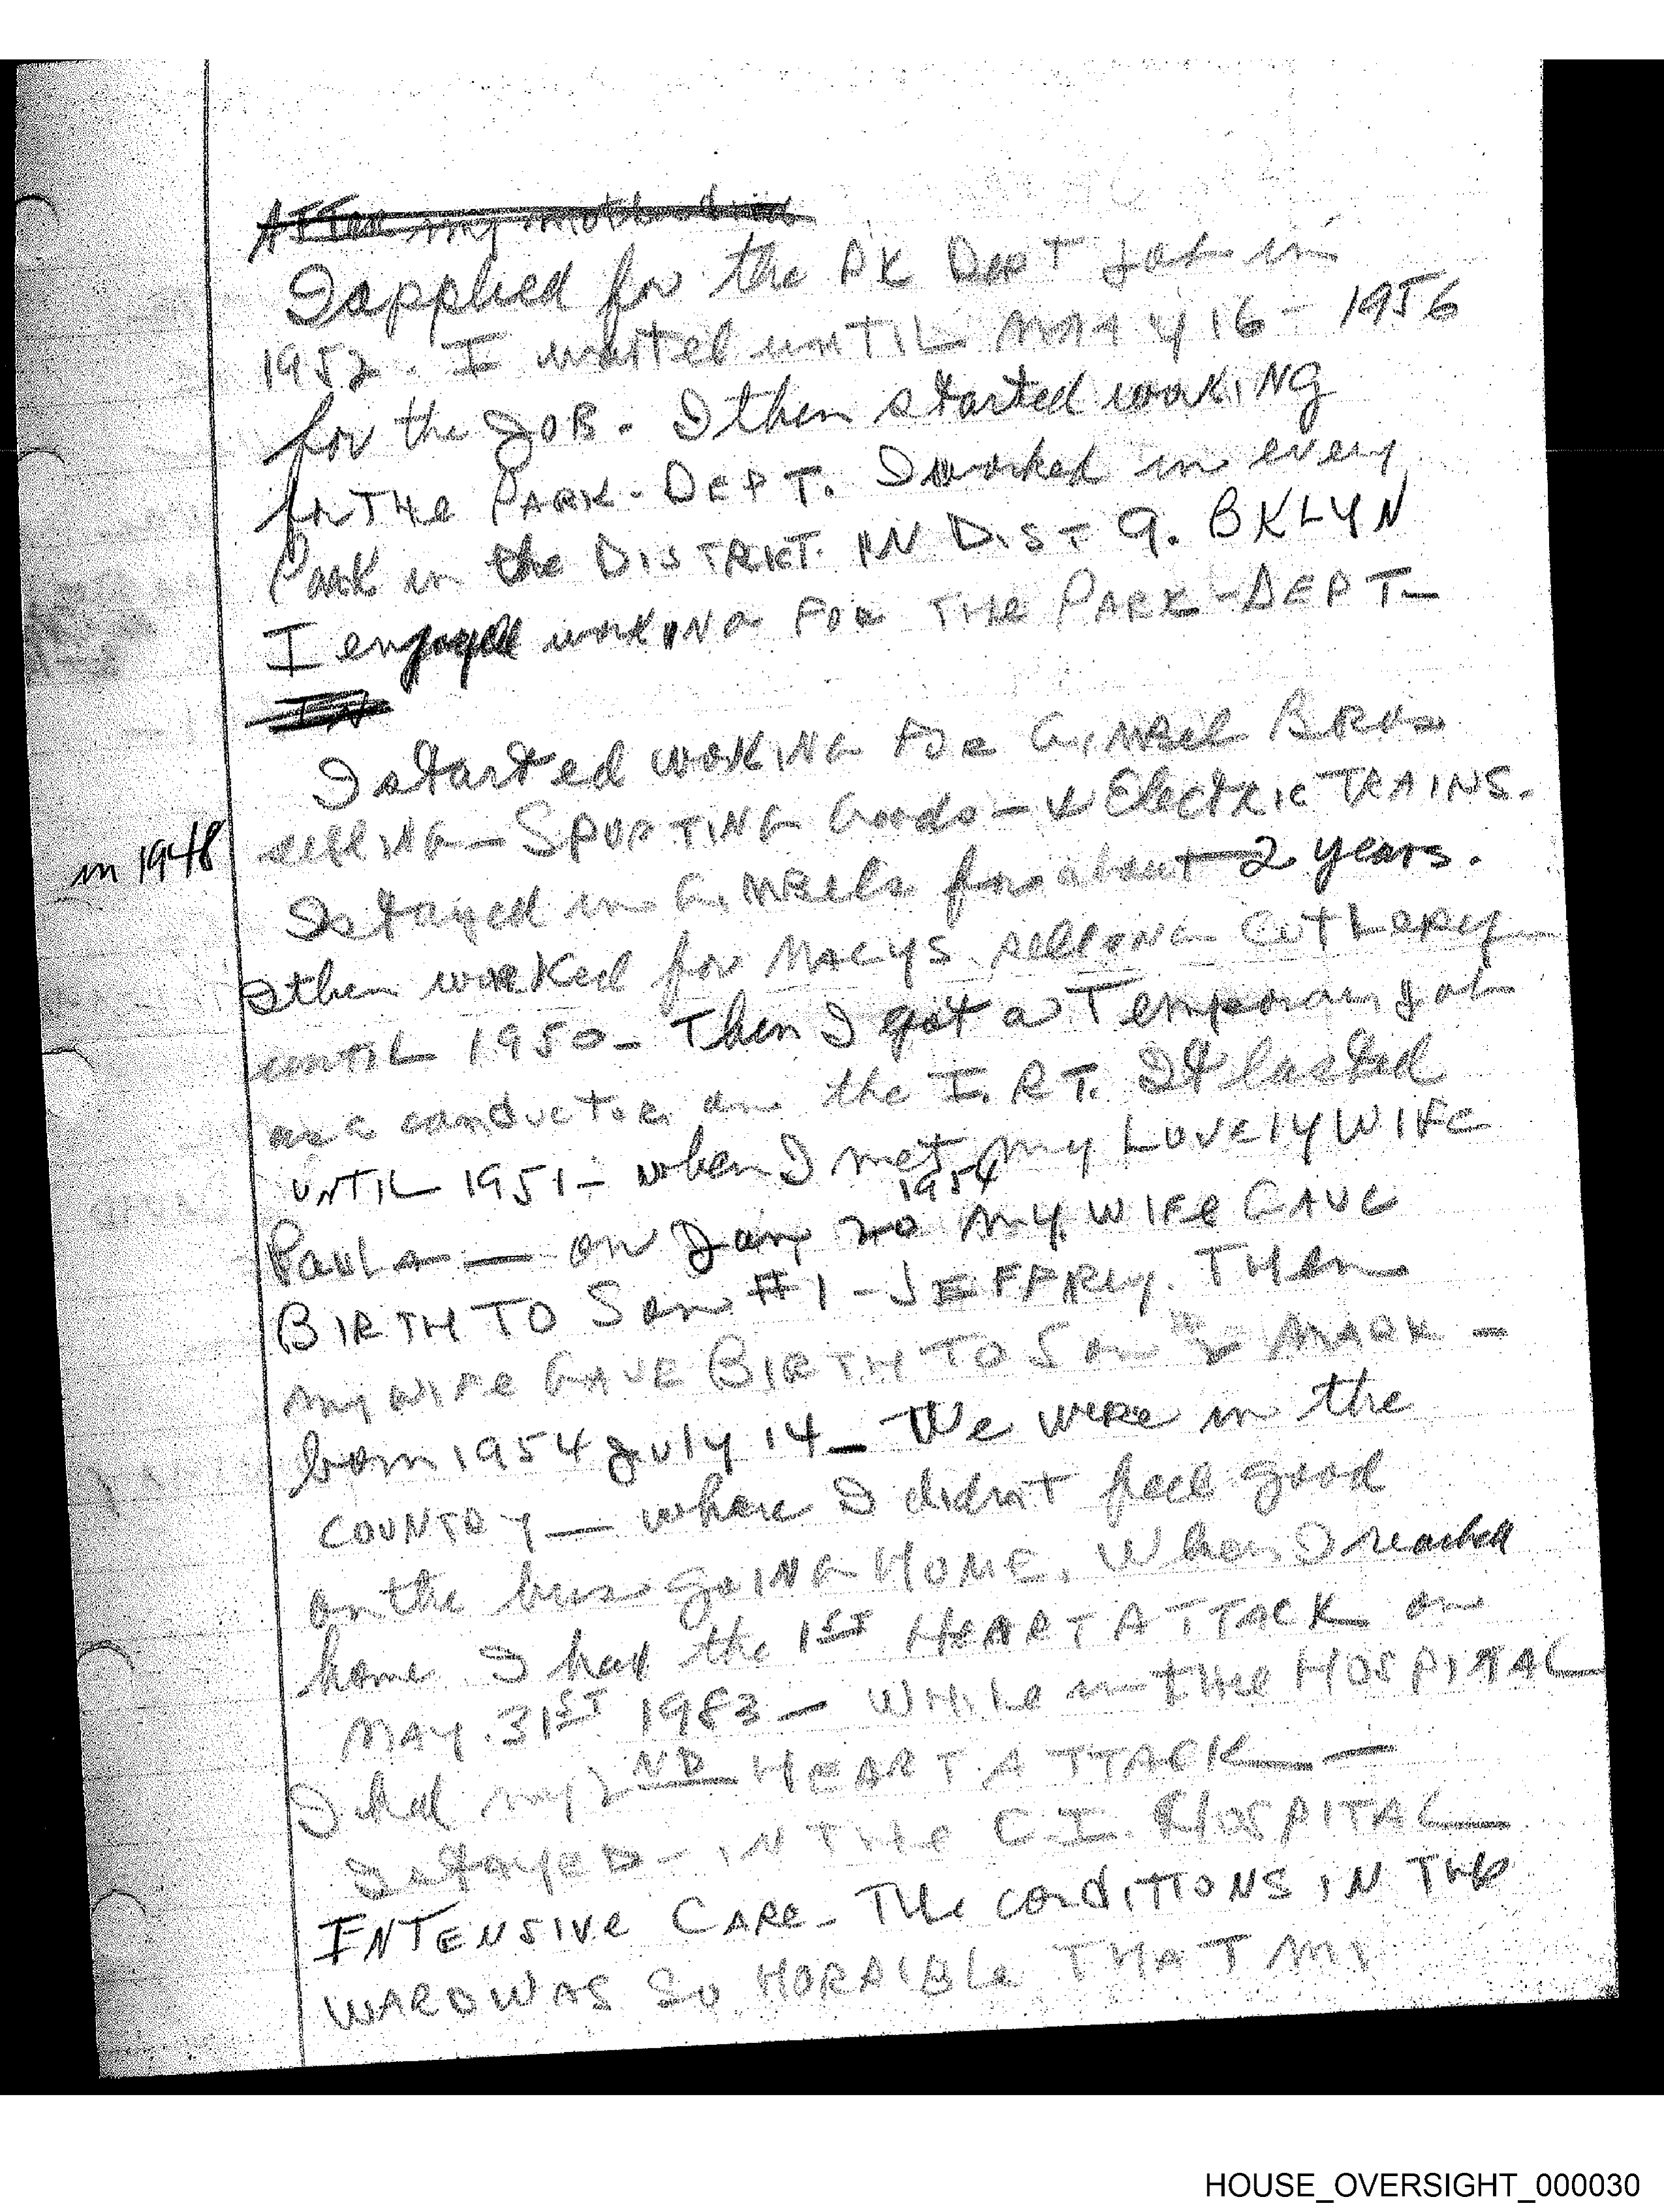 After my mother died
I applied for the PK DepT job in
1952. I waited unTIL MAY 16 - 1956
for the JOB. I then started workiNg
for THe PARK-DEPT. I worked in every
Park in the DISTRICT IN DIST 9. BKLYN
I enjoyed workiNG FOR THe PARK-DEPT-
IN
I started workiNG FOR GiMBel BROs
selliNG - SPORTING Goods - & ElecTRic TRAINS.
in 1948
I stayed in GiMBels for about 2 years.
I then worked for MACYS selliNG CuTLeRy
unTIL 1950 - Then I got a Temporary job
as a conductor on the I.R.T. It lasted
UNTIL 1951 - when I met my LOVELY WIFE
1954
PAULA - on Jan 20 MY WIFE GAVE
BIRTH TO Son #1 - JEFFREY. THen
my WIFe GAVE BIRTH TO Son #2 MARK -
born 1954 JULY 14 - We weRe in the
COUNTRY - where I didn't feel good
on the bus goiNG HOME. When I reached
home I had the 1ST HEART ATTACK on
MAY. 31ST 1983 - WHILe in THe HOSPITAL
I had my 2ND HEART ATTACK -
I stAYED - IN THe C.I. HOSPITAL
INTENSIVe CARe - THe conditiONS IN THe
WARD WAS So HORRIBLe THAT MY
HOUSE_OVERSIGHT_000030